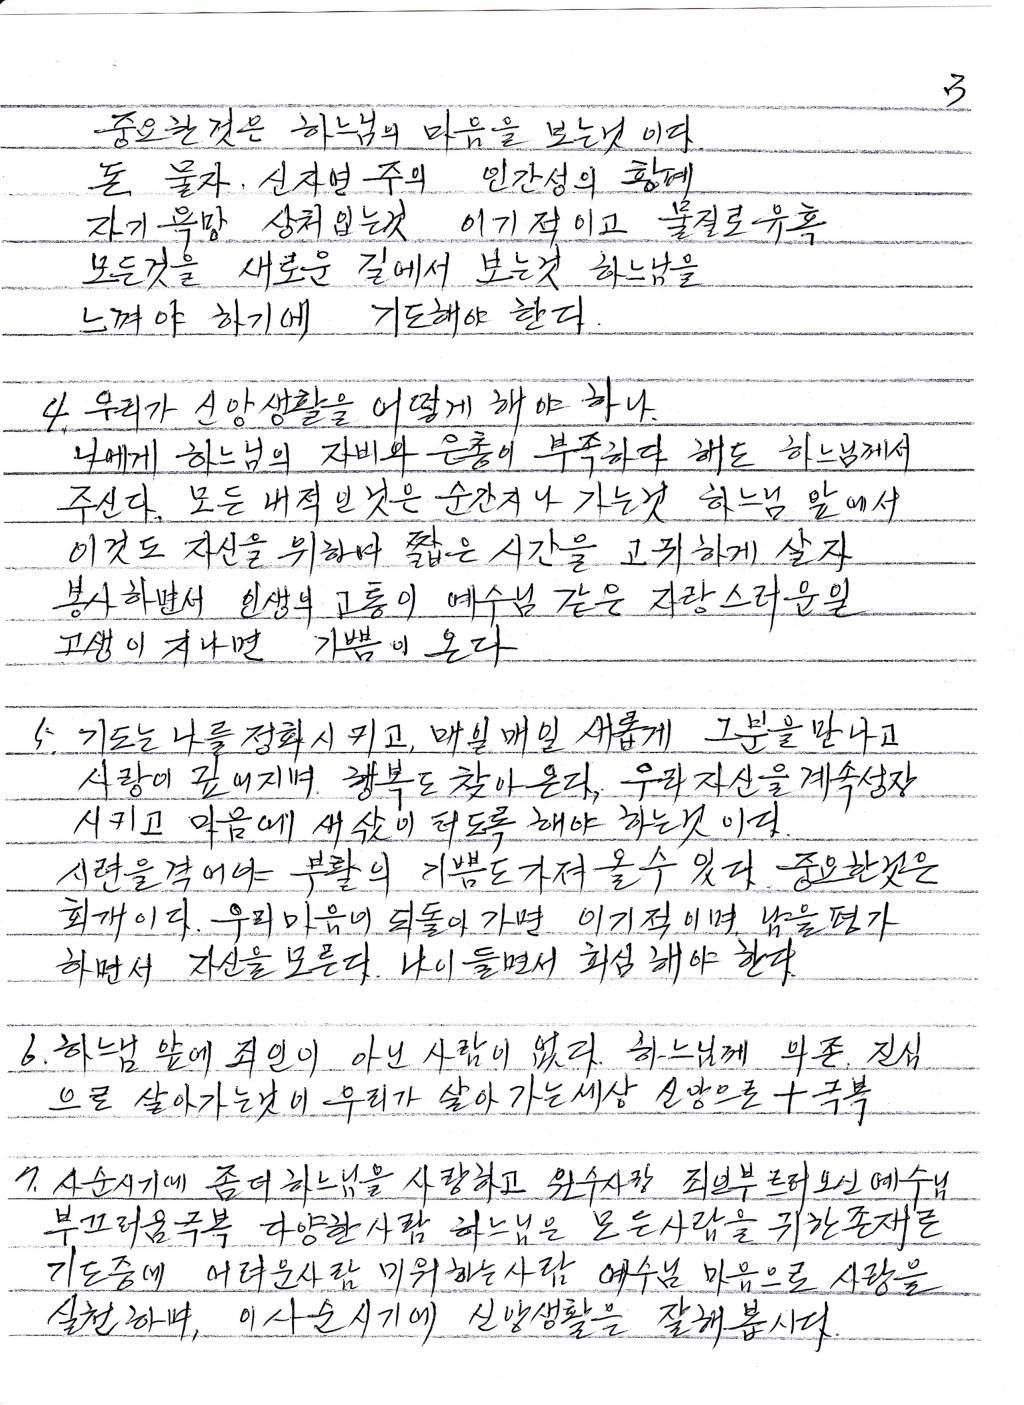 3
중요한것은 하느님의 마음을 보는것 이다.
돈, 물자. 신자변 주의 인간성의 황폐
자기 욕망 상처입는것 이기적이고 물질로유혹
모든것을 새로운 길에서 보는것 하느님을
느껴야 하기에 기도해야 한다.
4. 우리가 신앙생활을 어떻게 해야 하나.
나에게 하느님의 자비와 은총이 부족하다 해도 하느님께서
주신다. 모든 내적인것은 순간지나 가는것 하느님 앞에서
이것도 자신을 위하며 짧은 시간을 고귀하게 살자
봉사하면서 인생의 고통이 예수님 같은 자랑스러운일
고생이 지나면 기쁨이 온다
5. 기도는 나를 정화시키고, 매일매일 새롭게 그분을 만나고
사랑이 깊어지며. 행복도 찾아온다, 우리자신을 계속성장
시키고 마음에 새싹이 터도록 해야 하는것이다.
시련을격어야 부활의 기쁨도가져 올수 있다. 중요한것은
회개이다. 우리마음이 되돌아 가면 이기적이며 남을평가
하면서 자신을 모른다. 나이 들면서 회심 해야 한다.
6. 하느님 앞에 죄인이 아닌 사람이 없다. 하느님께 의존. 진심
으로 살아가는것이 우리가 살아 가는세상 신앙으로 + 극복
7. 사순시기에 좀더하느님을 사랑하고 원수사랑 죄인부르러오신예수님
부끄러움극복 다양한사람 하느님은 모든사람을 귀한존재로
기도중에 어려운사람 미워하는사람 예수님 마음으로 사랑을
실천하며, 이사순시기에 신앙생활을 잘해봅시다.